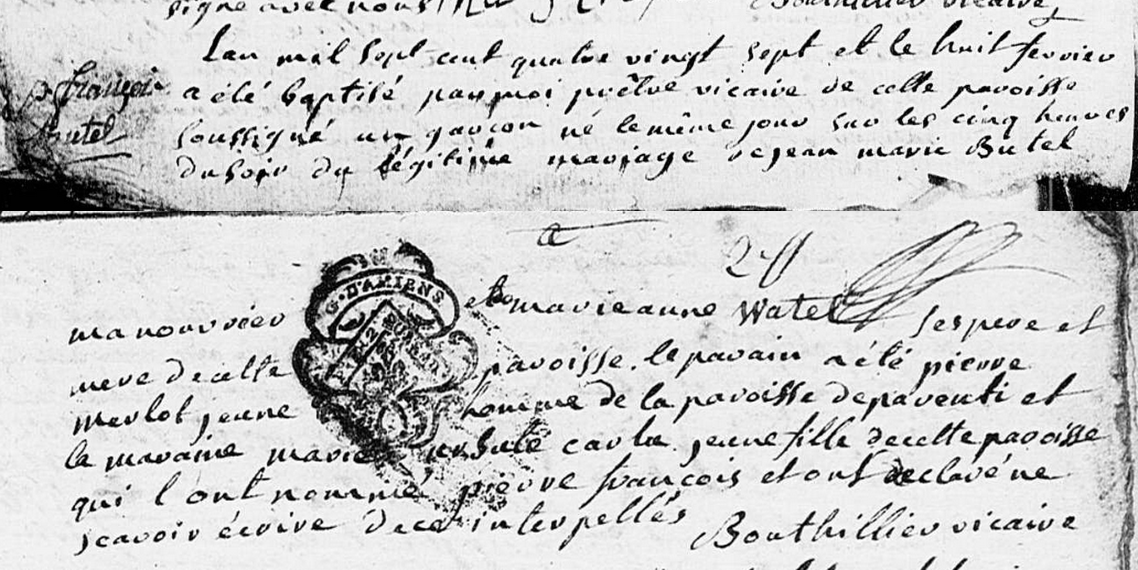 signé avec nous Bouthillier vicaire
Lan mil sept cent quatre vingt sept et le huit fevrier
p. françois
a été baptisé par moi prêtre vicaire de cette paroisse
Butel
soussigné un garcon né le même jour sur les cinq heures
du soir du légitime mariage de jean marie Butel
2 ff
G. D'AMIENS
manouvrier et de marie anne Watel ses pere et
mere de cette paroisse. le parain a été pierre
merlot jeune homme de la paroisse de parenti et
la maraine marie ursule carlu jeune fille de cette paroisse
qui l'ont nommé pierre françois et ont declaré ne
scavoir écrire de ce interpellés
Bouthillier vicaire